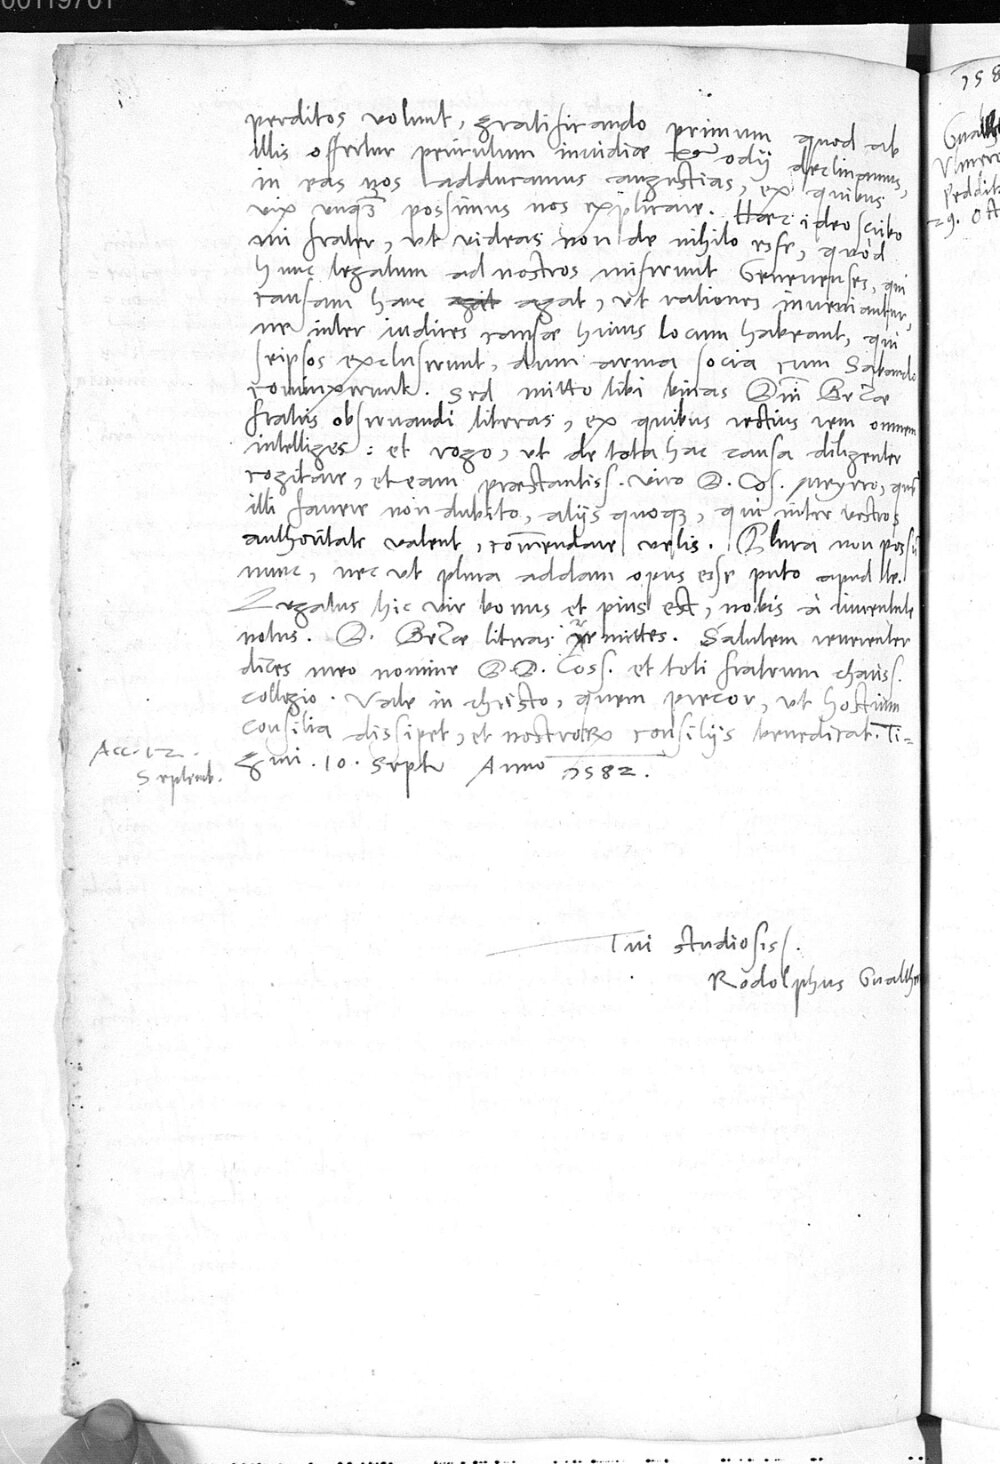 00119701
perditos volunt, gratificando primum quod ab
illis offertur periculum invidiæ & odij declinamus,
in eas nos adducamus angustias, ex quibus
vix unquã possimus nos explicare. Hæc ideo scribo
mi frater, ut videas non de nihilo esse, quòd
hunc legatum ad nostros miserunt Genevenses, qui
causam hanc agat, ut rationes inveniantur,
ne inter iudices causæ huius locum habeant, qui
seipsos excluserunt, dum arma socia cum Sabaudo
coniunxerunt. Sed mitto tibi binas Dñi Bezæ
fratris observandi literas, ex quibus rectius rem omnem
intelliges: et rogo, ut de tota hac causa diligenter
cogitare, et eam præstantiss. viro D. Cos. Meyero, quẽ
illi favere non dubito, alijs quoq3, qui inter vestros
authoritate valent, com̄endare velis. Plura non possũ
nunc, nec ut plura addam opus esse puto apud te.
Legatus hic vir bonus et pius est, nobis à iuventute
notus. D. Bezæ literas remittes. Salutem reverenter
dices meo nomine D.D. Coss. et toti fratrum chariss.
collegio. Vale in Christo, quem precor, ut hostium
consilia dissipet, et nostrorũ consilijs benedicat. Ti=
guri. 10. Sept. Anno 1582.
Acc. 12.
Septemb.
Tui studiosiss.
Rodolphus Gualthe
158
29. Oct